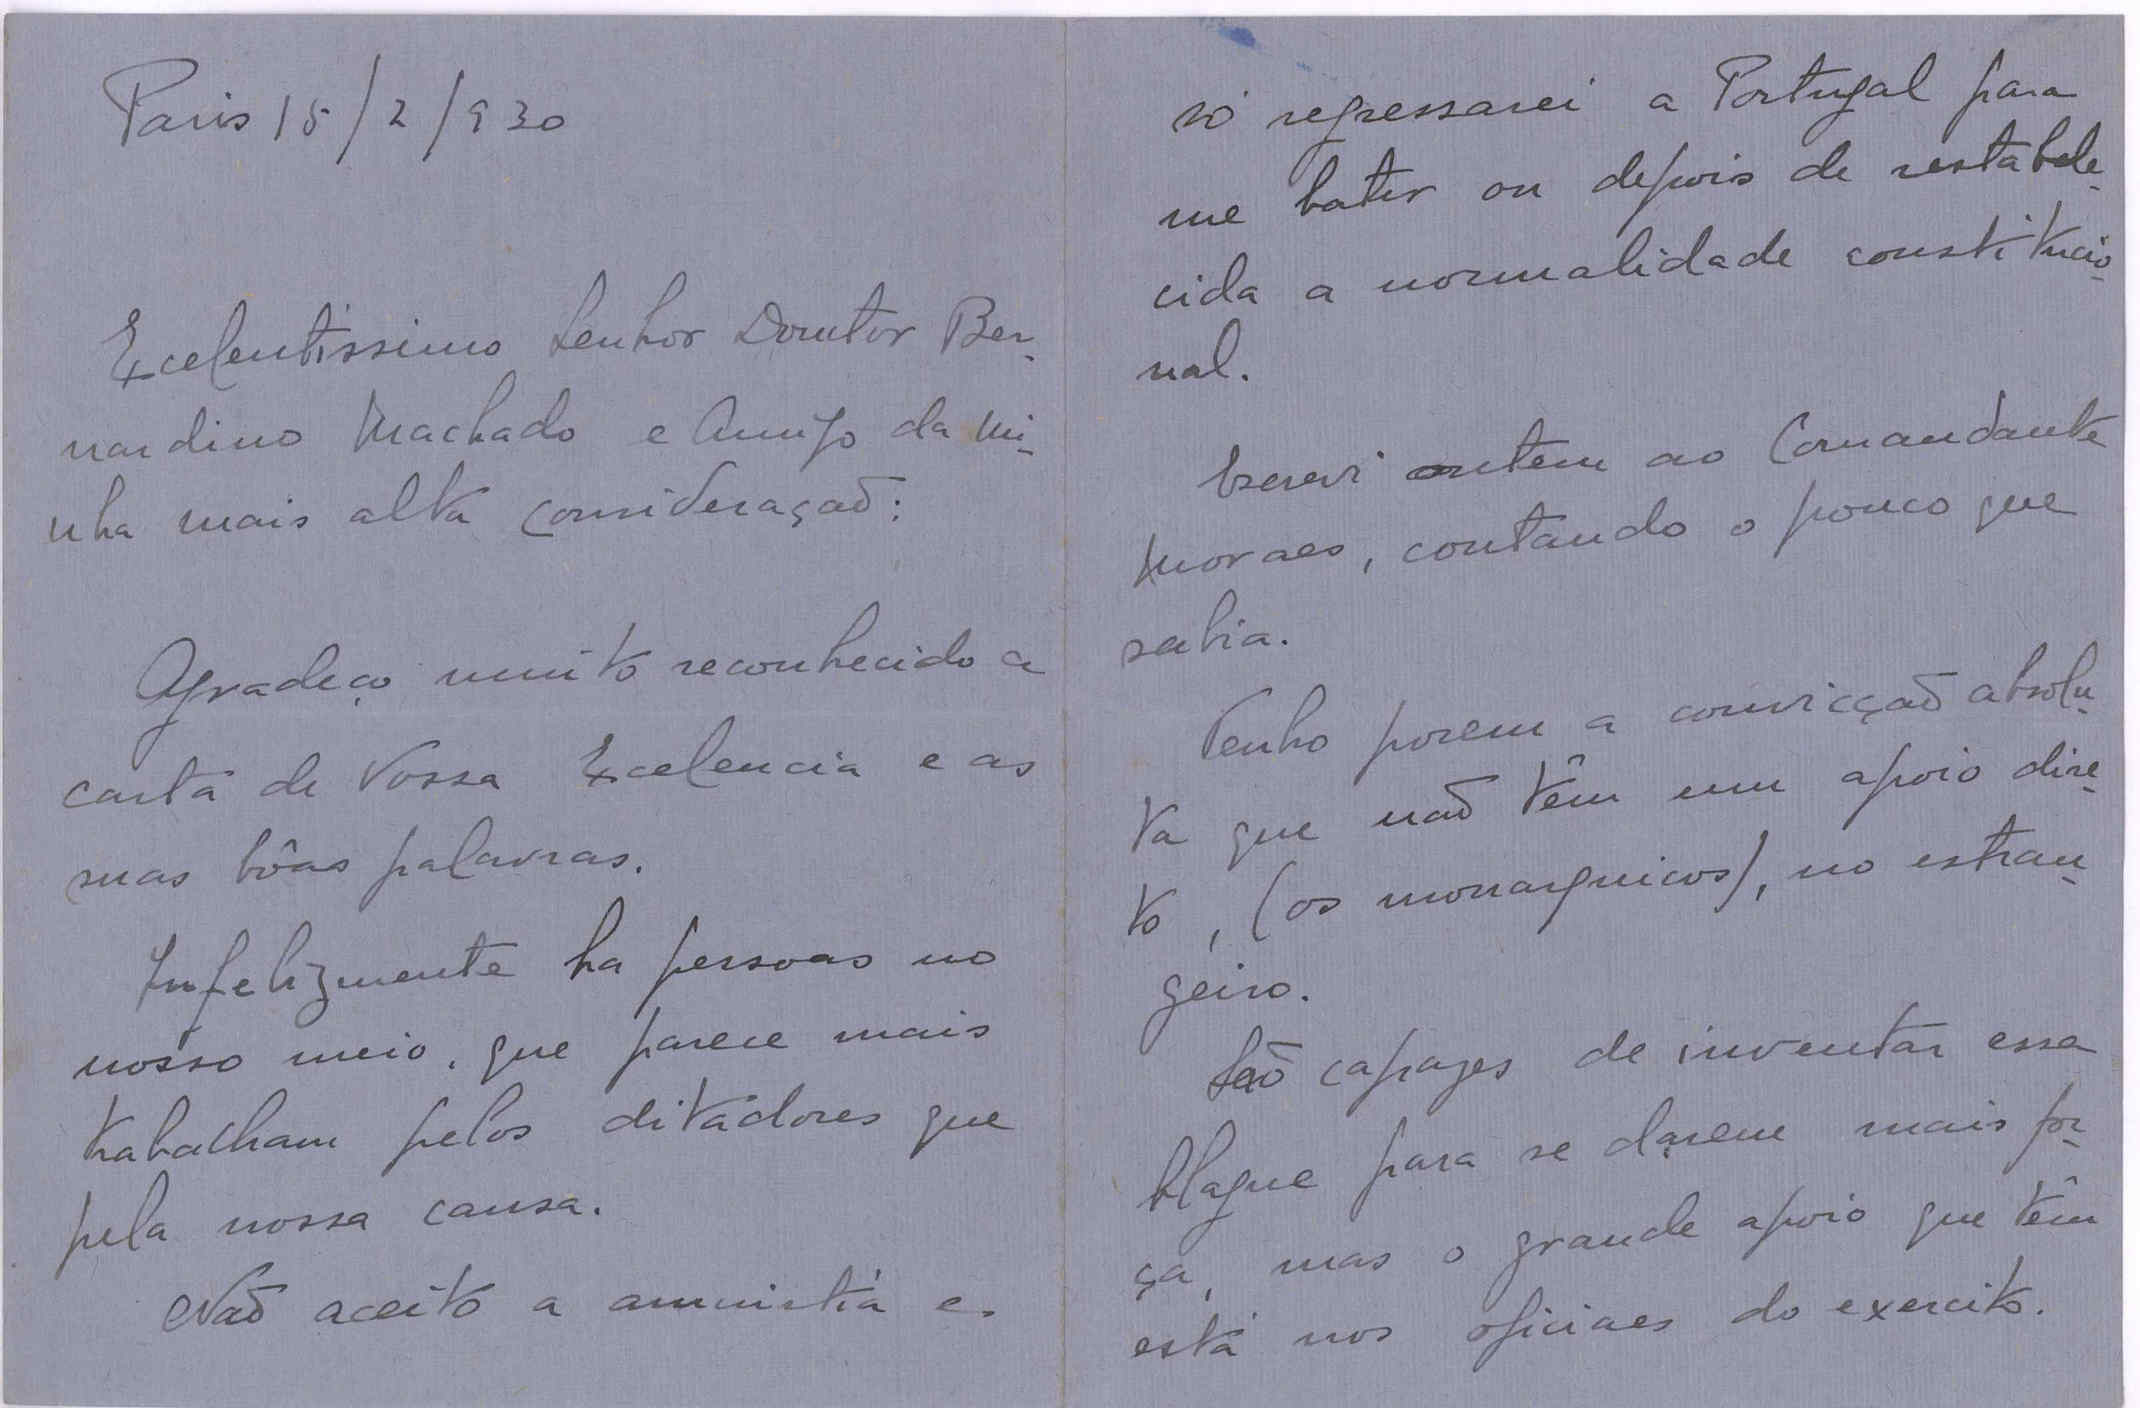 Paris 15/2/930
Excelentissimo Senhor Doutor Ber-
nardino Machado e Amigo da Mi-
nha mais alta consideraçaõ:
Agradeço muito reconhecido a
carta de Vossa Excelencia e as
suas bôas palavras.
Infelizmente ha pessoas no
nosso meio, que parece mais
trabalham pelos ditadores que
pela nossa causa.
Naõ aceito a amnistia e
só regressarei a Portugal para
me bater ou depois de restabele-
cida a normalidade constitucio-
nal.
Escrevi ontem ao Comandante
Moraes, contando o pouco que
sabia.
Tenho porem a convicçaõ absolu-
ta que naõ têm um apoio dire-
to, (os monarquicos), no estran-
geiro.
Saõ capazes de inventar essa
blague para se darem mais for-
ça, mas o grande apoio que têm
está nos oficiaes do exercito.